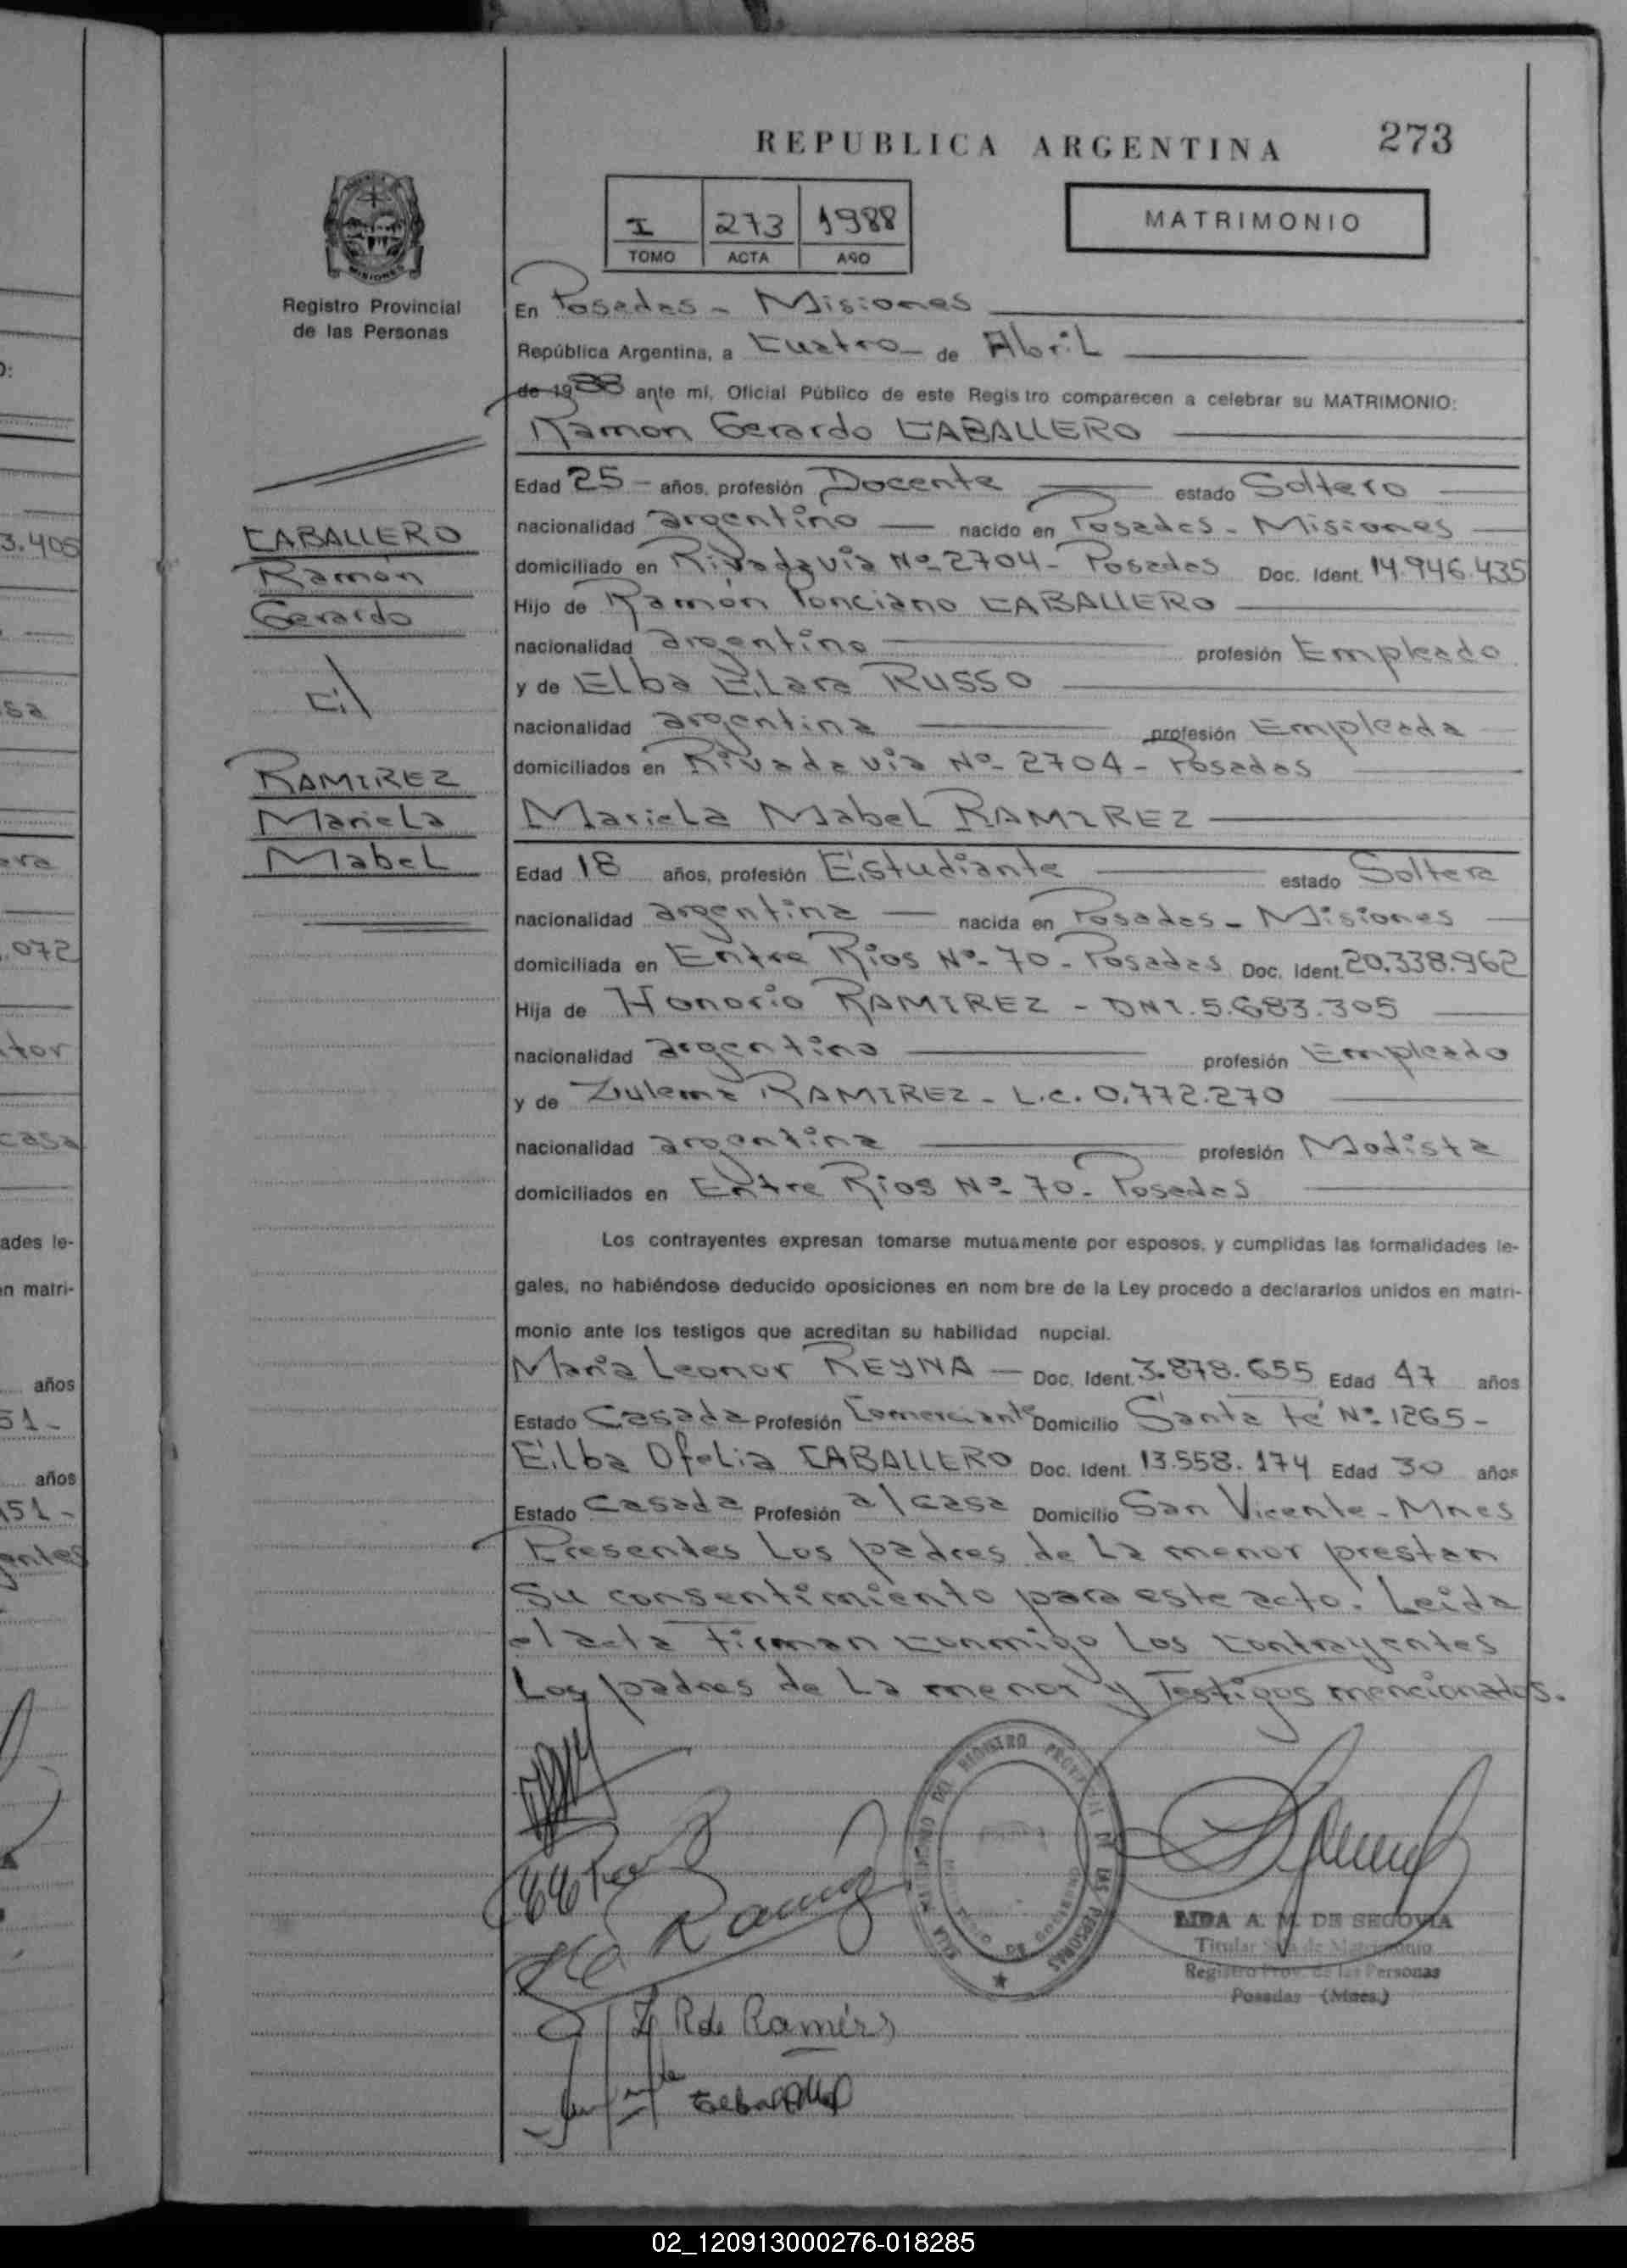 REPUBLICA ARGENTINA 273
MATRIMONIO
I 273 1988
TOMO ACTA AÑO
MISIONES
Registro Provincial
de las Personas
En Posadas - Misiones
República Argentina, a Cuatro de Abril
de 1988 ante mí, Oficial Público de este Regis tro comparecen a celebrar su MATRIMONIO:
Ramon Gerardo CABALLERO
Edad 25 años, profesión Docente estado Soltero
nacionalidad argentino nacido en Posadas - Misiones
domiciliado en Rivadavia Nº 2704 - Posadas Doc. Ident. 14.946.435
Hijo de Ramón Ponciano CABALLERO
nacionalidad argentino profesión Empleado
y de Elba RUSSO
nacionalidad argentina profesión Empleada
domiciliados en Rivadavia Nº 2704 - Posadas
CABALLERO
Ramón
Gerardo
c/
RAMIREZ
Mariela
Mabel
Mariela Mabel RAMIREZ
Edad 18 años, profesión Estudiante estado Soltera
nacionalidad argentina nacida en Posadas - Misiones
domiciliada en Entre Rios Nº 70 - Posadas Doc. Ident. 20.338.962
Hija de Honorio RAMIREZ - DNI. 5.683.305
nacionalidad argentino profesión Empleado
y de Zulema RAMIREZ - L.C. 0.772.270
nacionalidad argentina profesión Modista
domiciliados en Entre Rios Nº 70 - Posadas
Los contrayentes expresan tomarse mutuamente por esposos, y cumplidas las formalidades le-
gales, no habiéndose deducido oposiciones en nom bre de la Ley procedo a declararlos unidos en matri-
monio ante los testigos que acreditan su habilidad nupcial.
Maria Leonor REYNA - Doc. Ident. 3.878.655 Edad 47 años
Estado Casada Profesión Comerciante Domicilio Santa Fé Nº 1265 -
Elba Ofelia CABALLERO Doc. Ident. 13.558.174 Edad 30 años
Estado Casada Profesión a/casa Domicilio San Vicente - Mnes
Presentes Los padres de La menor prestan
su consentimiento para este acto. Leida
el acta Firman conmigo Los contrayentes
Los padres de La menor y Testigos mencionados.
LIDA A. M. DE SEGOVIA
Titular Sala de Matrimonio
Registro Prov. de las Personas
Posadas - (Mnes.)
Z R de Ramírez
3.405
072
tor
casa
ades le-
n matri-
años
51 -
años
51 -
antes
02_120913000276-018285